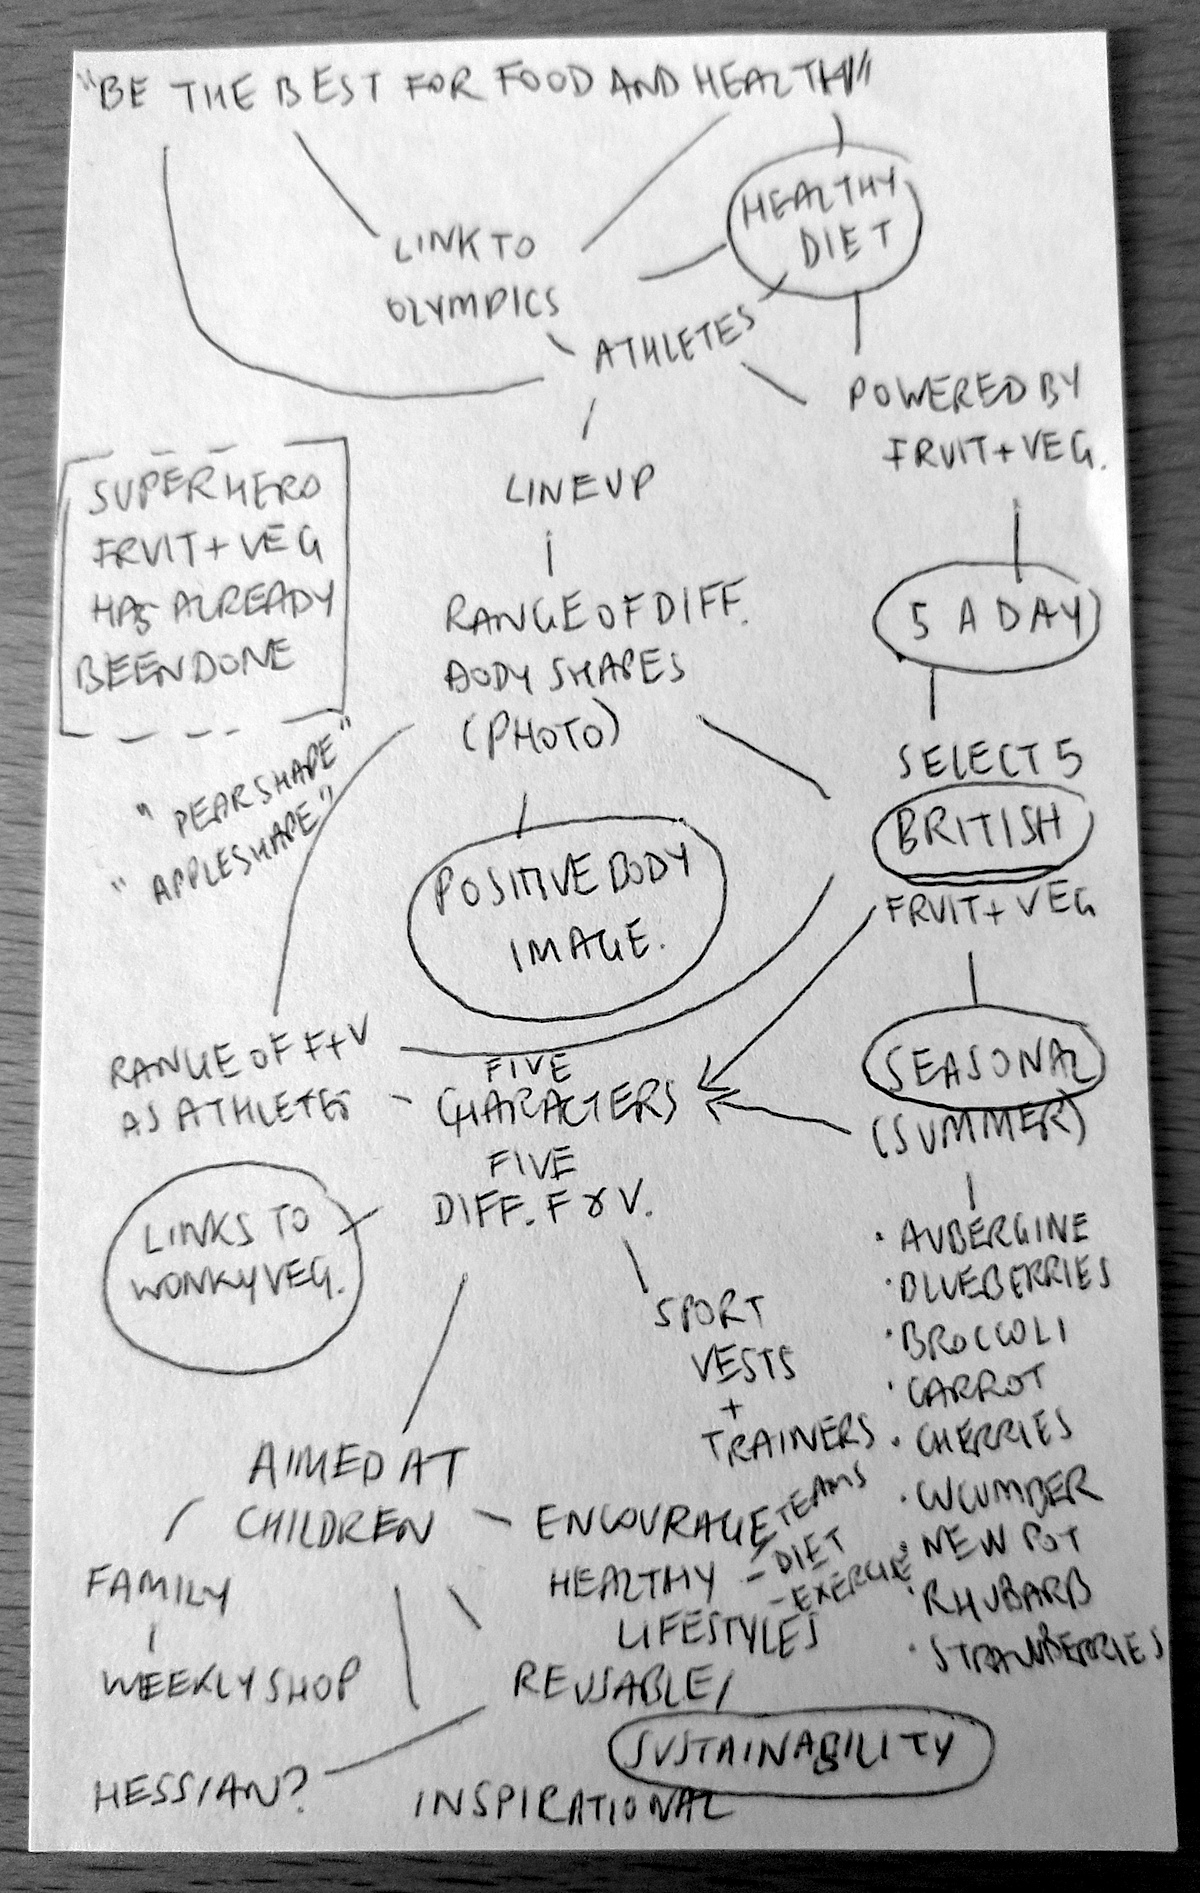 "BE THE BEST FOR FOOD AND HEALTH"
HEALTHY
DIET
LINK TO
OLYMPICS
ATHLETES
POWERED BY
FRUIT + VEG.
LINEUP
SUPERHERO
FRUIT + VEG
HAS ALREADY
BEEN DONE
RANGE OF DIFF.
BODY SHAPES
(PHOTO)
5 A DAY
SELECT 5
BRITISH
FRUIT + VEG
"PEAR SHAPE"
"APPLE SHAPE"
POSITIVE BODY
IMAGE.
SEASONAL
(SUMMER)
RANGE OF F+V
AS ATHLETES
FIVE
CHARACTERS
FIVE
DIFF. F & V.
LINKS TO
WONKY VEG.
SPORT
VESTS
+
TRAINERS
• AUBERGINE
• BLUEBERRIES
• BROCCOLI
• CARROT
• CHERRIES
• CUCUMBER
• NEW POT
• RHUBARB
• STRAWBERRIES
AIMED AT
CHILDREN
ENCOURAGE
HEALTHY
LIFESTYLES
- TEAMS
- DIET
- EXERCISE
FAMILY
WEEKLY SHOP
REUSABLE/
SUSTAINABILITY
HESSIAN?
INSPIRATIONAL